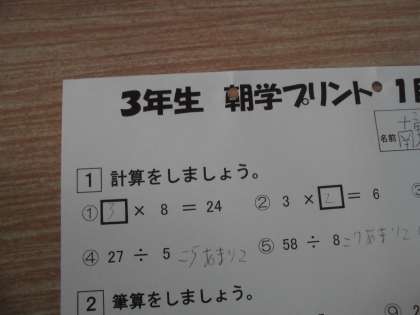 3年生 朝学プリント 1
名前
1 計算をしましょう。
① 3 × 8 = 24 ② 3 × 2 = 6 ③
④ 27 ÷ 5 =5あまり2 ⑤ 58 ÷ 8 =7あまり2
2 筆算をしましょう。